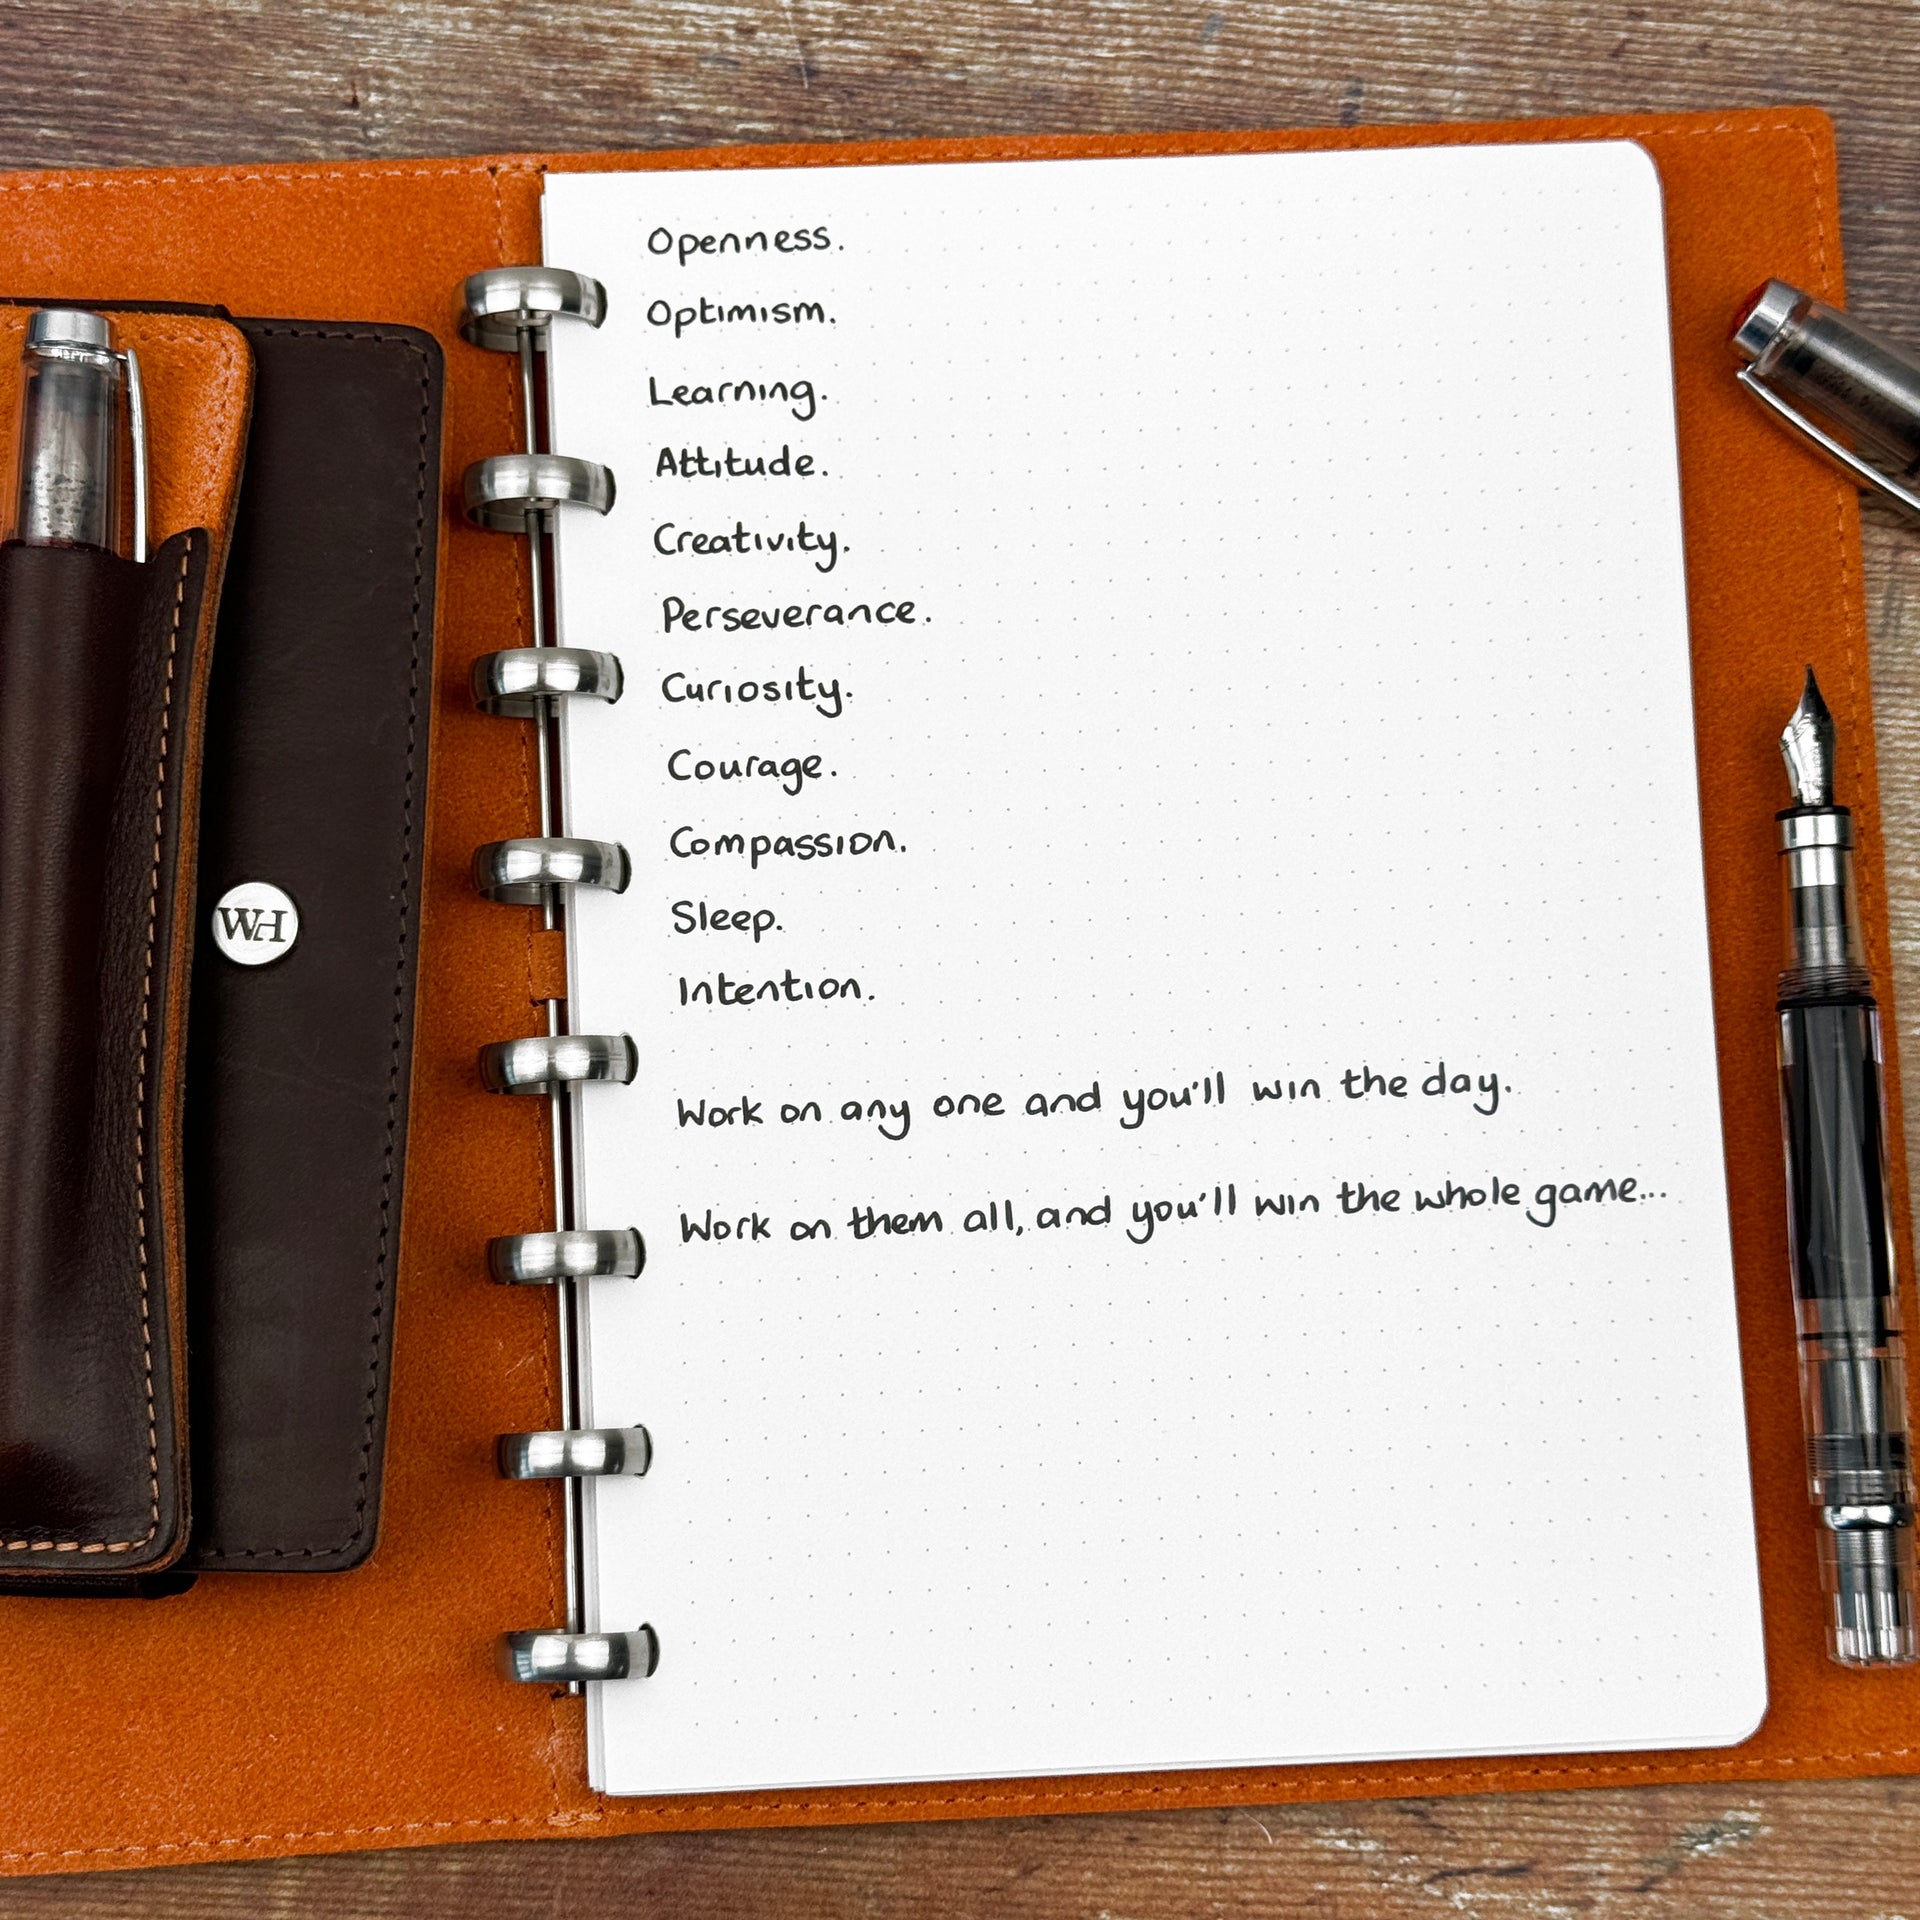 Openness.
Optimism.
Learning.
Attitude.
Creativity.
Perseverance.
Curiosity.
Courage.
Compassion.
Sleep.
Intention.
Work on any one and you'll win the day.
Work on them all, and you'll win the whole game...
WH